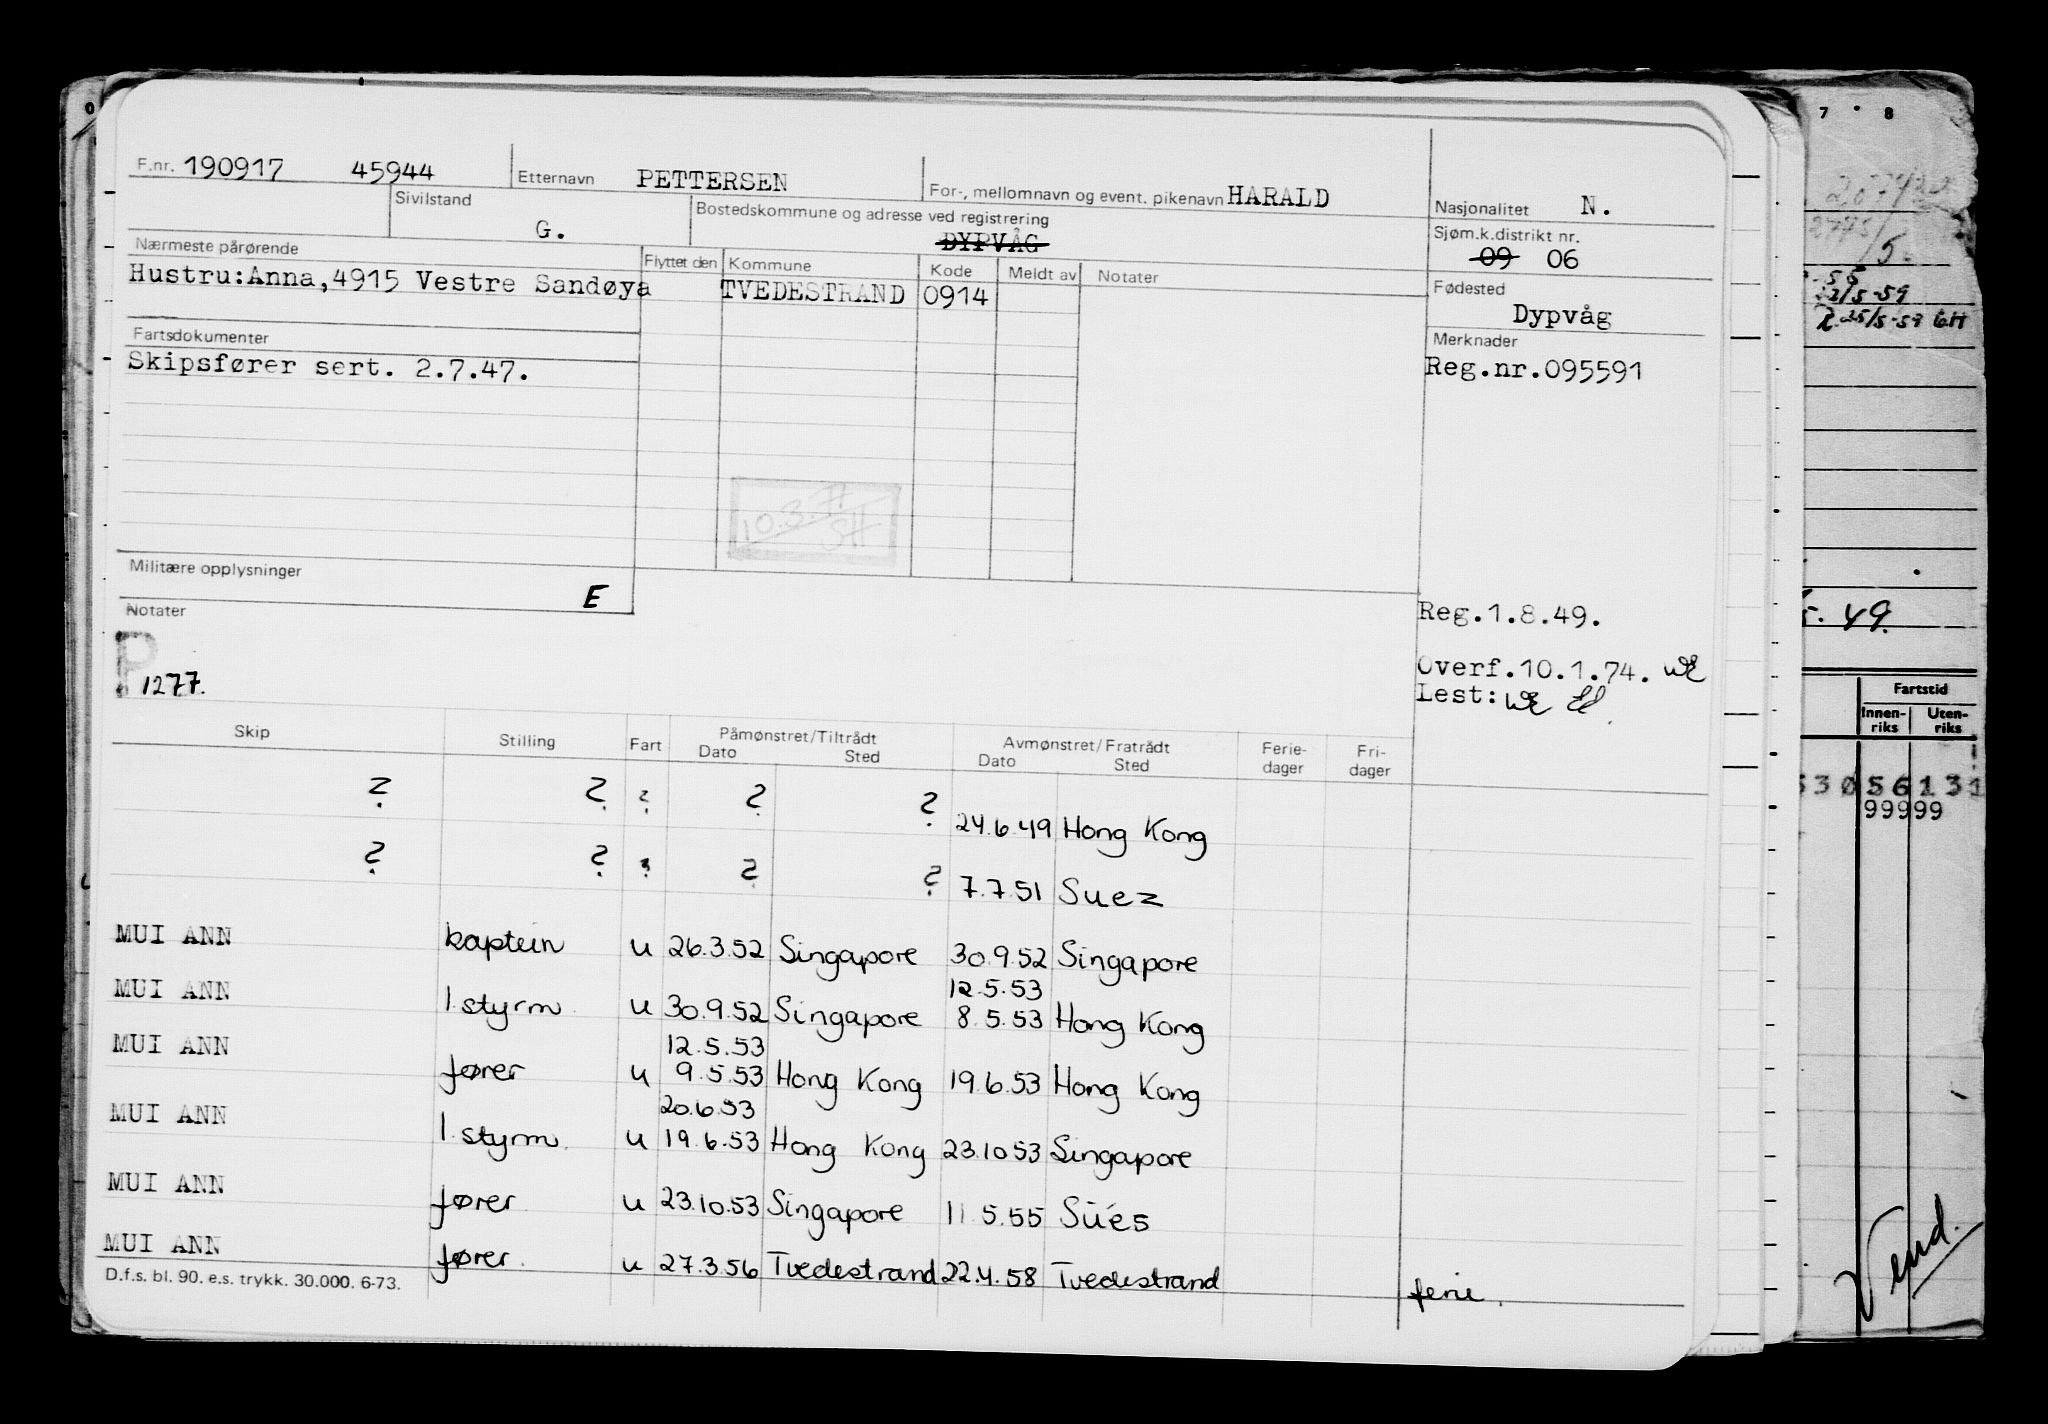 F.nr. 190917 45944 Etternavn PETTERSEN For-, mellomnavn og event. pikenavn HARALD
Nasjonalitet N.
Sivilstand G.
Bostedskommune og adresse ved registrering
DYPVÅG
Sjøm.k.distrikt nr.
09 06
Nærmeste pårørende
Hustru:Anna,4915 Vestre Sandøya
Flyttet den Kommune Kode Meldt av Notater
TVEDESTRAND 0914
Fødested
Dypvåg
Fartsdokumenter
Skipsfører sert. 2.7.47.
Merknader
Reg.nr.095591
10.3.
SH
Militære opplysninger
E
Notater
P
1277.
Reg.1.8.49.
Overf.10.1.74.
Lest:
Skip Stilling Fart Påmønstret/Tiltrådt Avmønstret/Fratrådt Ferie- Fri-
Dato Sted Dato Sted dager dager
? ? ? ? ? 24.6.49 Hong Kong
? ? ? ? ? 7.7.51 Suez
MUI ANN kaptein u 26.3.52 Singapore 30.9.52 Singapore
12.5.53
MUI ANN 1. styrm. u 30.9.52 Singapore 8.5.53 Hong Kong
12.5.53
MUI ANN fører u 9.5.53 Hong Kong 19.6.53 Hong Kong
20.6.53
MUI ANN 1. styrm. u 19.6.53 Hong Kong 23.10.53 Singapore
MUI ANN fører u 23.10.53 Singapore 11.5.55 Súes
MUI ANN fører. u 27.3.56 Tvedestrand 22.4.58 Tvedestrand ferie.
D.f.s. bl. 90. e.s. trykk. 30.000. 6-73.
7 8
49.
Fartstid
Innen-
riks
Uten-
riks
99999
Vend.